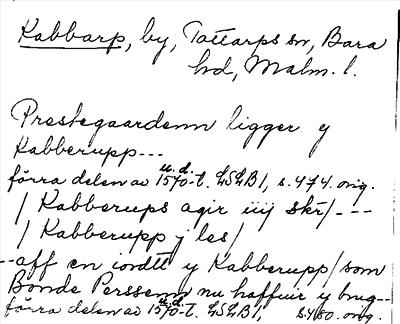 Kabbarp, by, Tottarps sn, Bara
hd, Malm. l.
Prestegaardenn ligger y
Kabberupp---
u.d.
förra delen av 1570-t. LSLB1, s. 474. orig.
/ Kabberups agir iiij skr/ - - -
/ Kabberupp j les/
--aff en iordtt y Kabberupp/som
Bonde Perssenn nu haffuir y brug--
u.d.
förra delen av 1570-t. LSLB1, s. 480. orig.